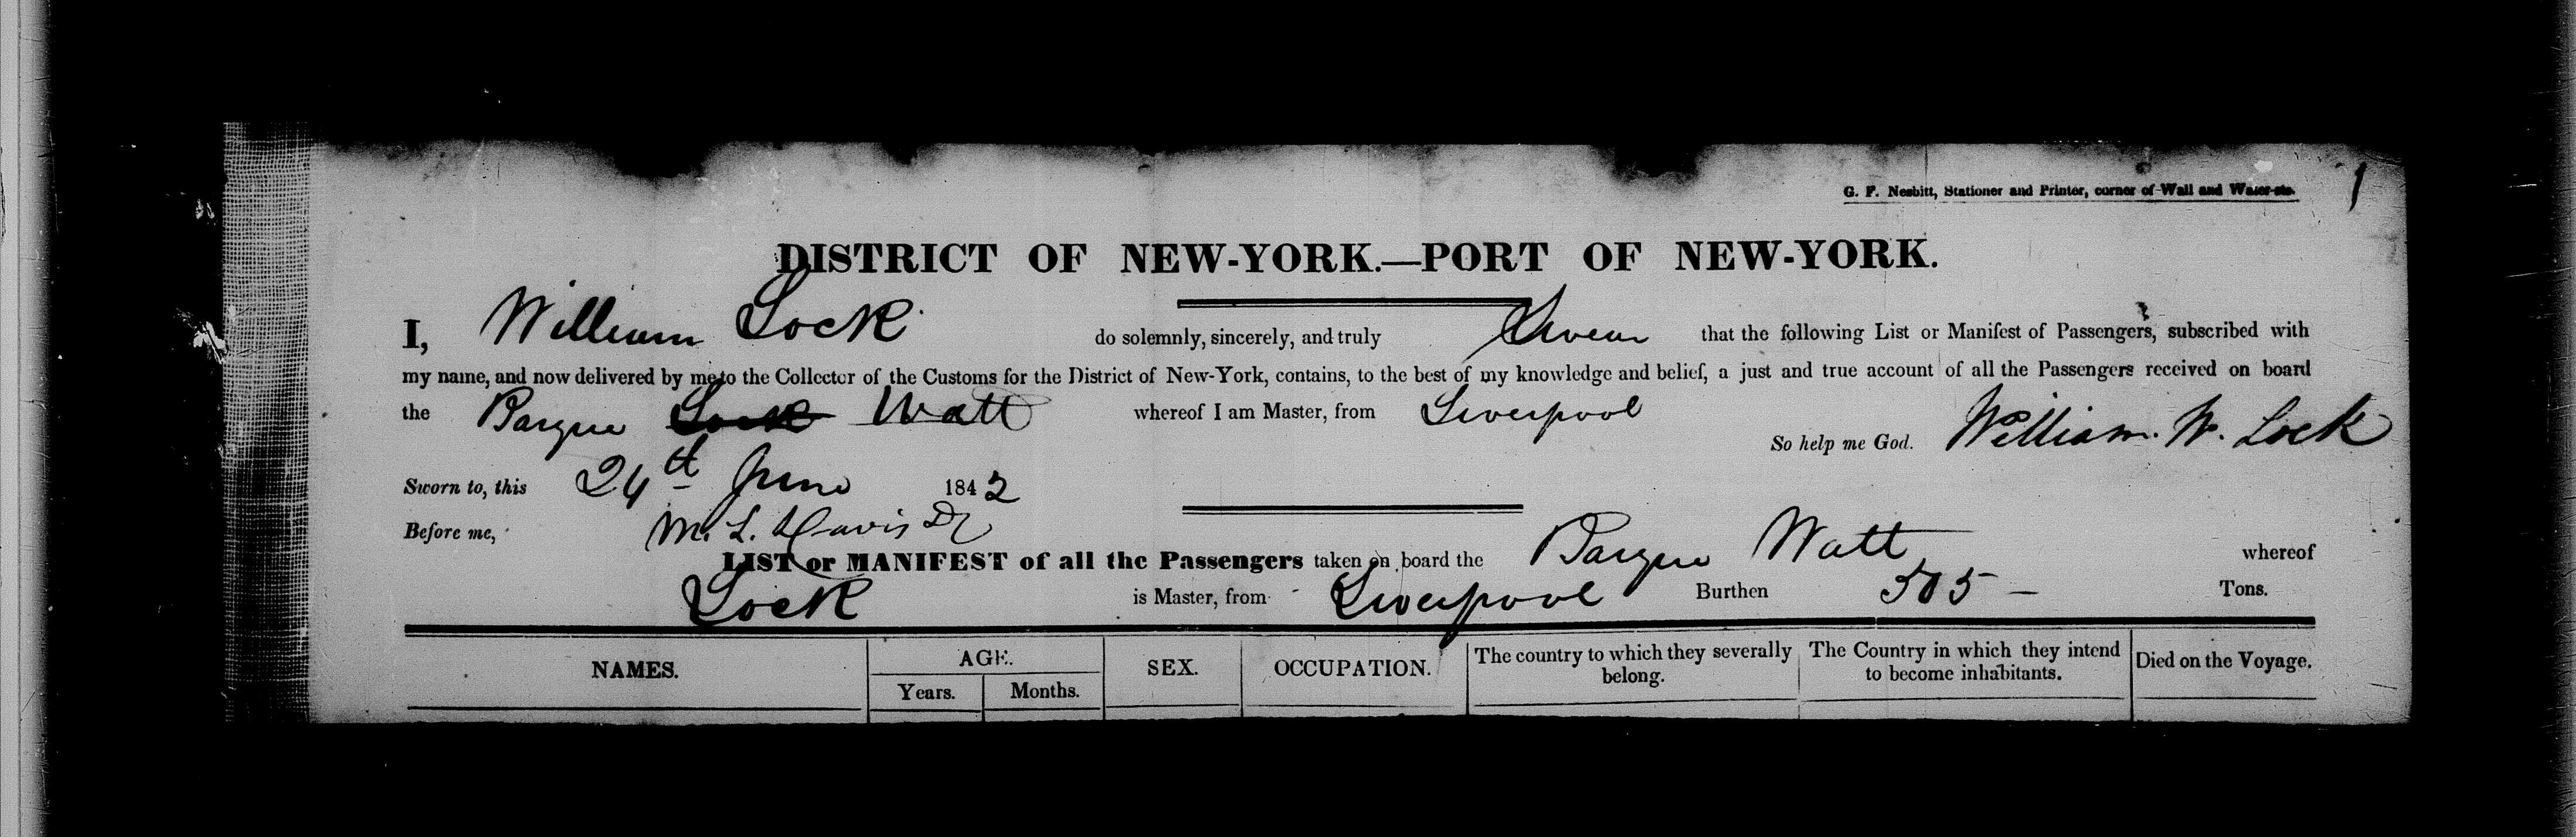 G. F. Nesbitt, Stationer and Printer, corner of Wall and Water-sts.
1
DISTRICT OF NEW-YORK.—PORT OF NEW-YORK.
I, William Lock do solemnly, sincerely, and truly Swear that the following List or Manifest of Passengers, subscribed with
my name, and now delivered by me to the Collector of the Customs for the District of New-York, contains, to the best of my knowledge and belief, a just and true account of all the Passengers received on board
the Barque Lock Watt whereof I am Master, from Liverpool
So help me God. William. W. Lock
Sworn to, this 24th June 1842
Before me, M. L. Davis
LIST or MANIFEST of all the Passengers taken on board the Barque Watt whereof
Lock is Master, from Liverpool Burthen 505 — Tons.
NAMES. AGE. SEX. OCCUPATION. The country to which they severally belong. The Country in which they intend to become inhabitants. Died on the Voyage.
Years. Months.